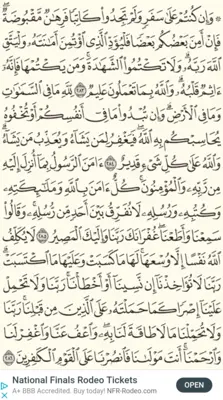 وَإِن كُنتُمْ عَلَىٰ سَفَرٍ وَلَمْ تَجِدُوا۟ كَاتِبًا فَرِهَٰنٌ مَّقْبُوضَةٌ
فَإِنْ أَمِنَ بَعْضُكُم بَعْضًا فَلْيُؤَدِّ ٱلَّذِى ٱؤْتُمِنَ أَمَٰنَتَهُۥ وَلْيَتَّقِ
ٱللَّهَ رَبَّهُۥ وَلَا تَكْتُمُوا۟ ٱلشَّهَٰدَةَ وَمَن يَكْتُمْهَا فَإِنَّهُۥٓ
ءَاثِمٌ قَلْبُهُۥ وَٱللَّهُ بِمَا تَعْمَلُونَ عَلِيمٌ ٢٨٣ لِّلَّهِ مَا فِى ٱلسَّمَٰوَٰتِ
وَمَا فِى ٱلْأَرْضِ وَإِن تُبْدُوا۟ مَا فِىٓ أَنفُسِكُمْ أَوْ تُخْفُوهُ
يُحَاسِبْكُم بِهِ ٱللَّهُ فَيَغْفِرُ لِمَن يَشَآءُ وَيُعَذِّبُ مَن يَشَآءُ
وَٱللَّهُ عَلَىٰ كُلِّ شَىْءٍ قَدِيرٌ ٢٨٤ ءَامَنَ ٱلرَّسُولُ بِمَآ أُنزِلَ إِلَيْهِ
مِن رَّبِّهِۦ وَٱلْمُؤْمِنُونَ كُلٌّ ءَامَنَ بِٱللَّهِ وَمَلَٰٓئِكَتِهِۦ
وَكُتُبِهِۦ وَرُسُلِهِۦ لَا نُفَرِّقُ بَيْنَ أَحَدٍ مِّن رُّسُلِهِۦ وَقَالُوا۟
سَمِعْنَا وَأَطَعْنَا غُفْرَانَكَ رَبَّنَا وَإِلَيْكَ ٱلْمَصِيرُ ٢٨٥ لَا يُكَلِّفُ
ٱللَّهُ نَفْسًا إِلَّا وُسْعَهَا لَهَا مَا كَسَبَتْ وَعَلَيْهَا مَا ٱكْتَسَبَتْ
رَبَّنَا لَا تُؤَاخِذْنَآ إِن نَّسِينَآ أَوْ أَخْطَأْنَا رَبَّنَا وَلَا تَحْمِلْ
عَلَيْنَآ إِصْرًا كَمَا حَمَلْتَهُۥ عَلَى ٱلَّذِينَ مِن قَبْلِنَا رَبَّنَا
وَلَا تُحَمِّلْنَا مَا لَا طَاقَةَ لَنَا بِهِۦ وَٱعْفُ عَنَّا وَٱغْفِرْ لَنَا
وَٱرْحَمْنَآ أَنتَ مَوْلَىٰنَا فَٱنصُرْنَا عَلَى ٱلْقَوْمِ ٱلْكَٰفِرِينَ ٢٨٦
National Finals Rodeo Tickets
A+ BBB Accredited. Buy today! NFR-Rodeo.com
OPEN